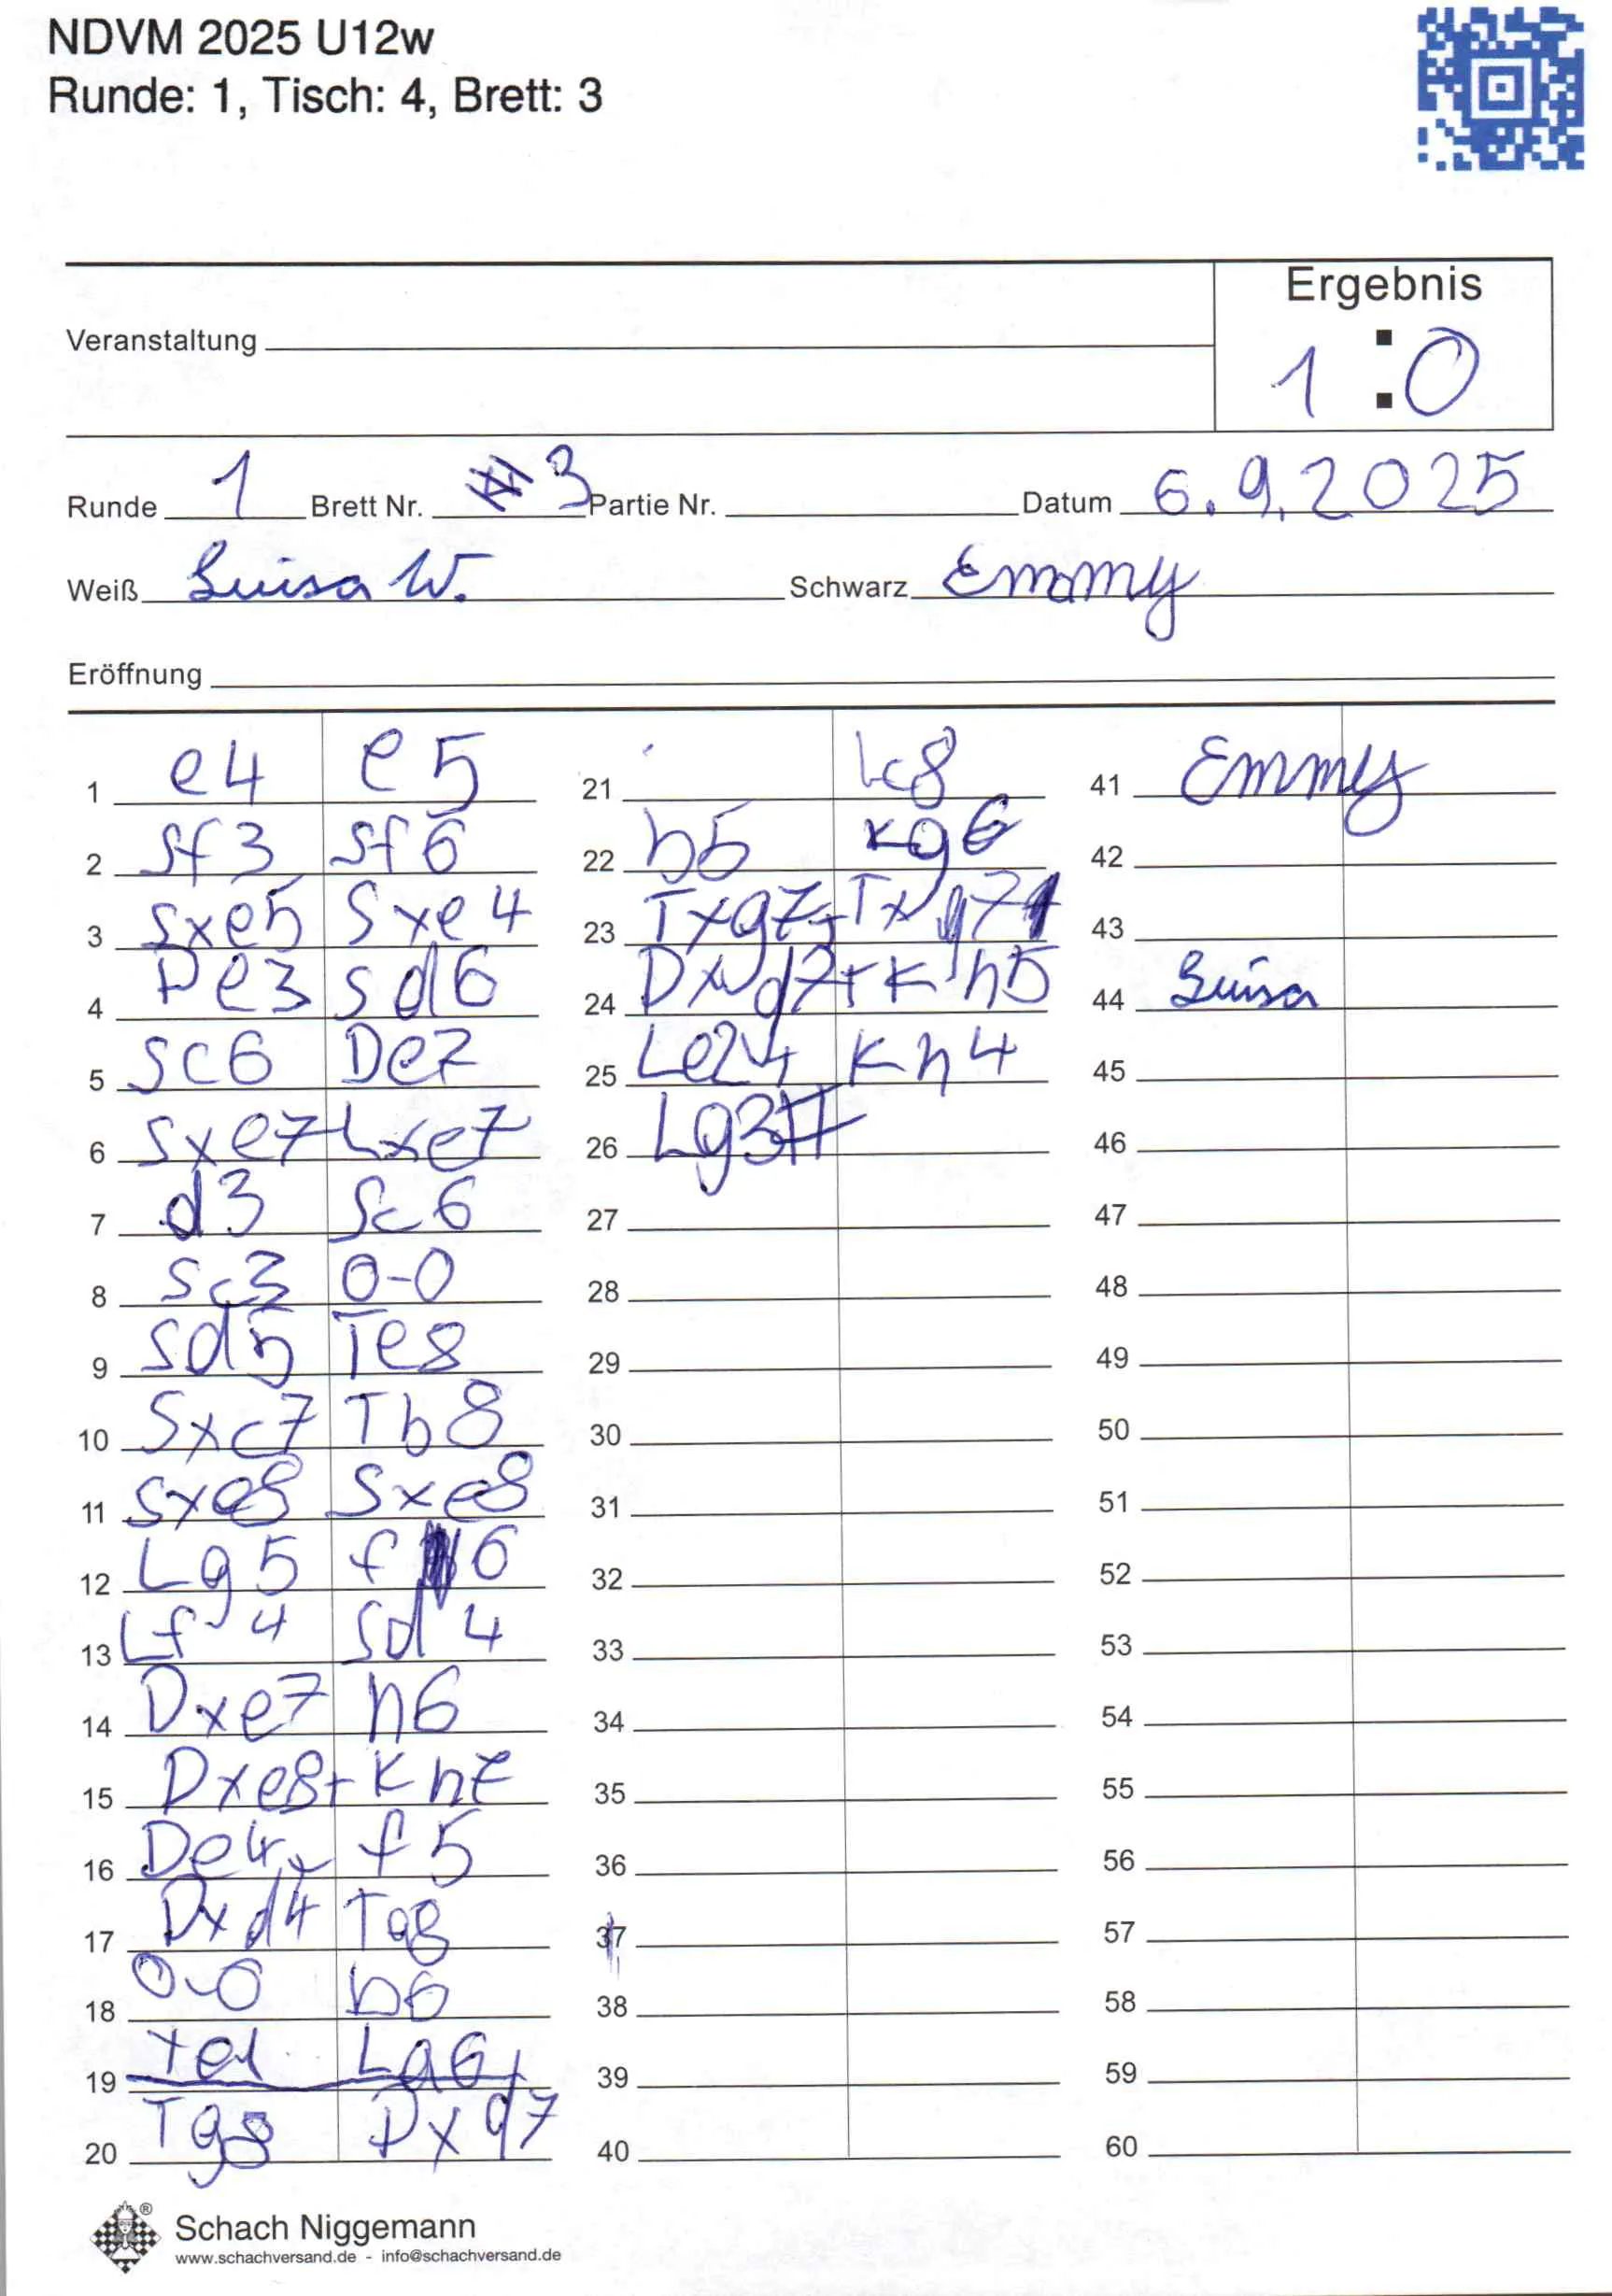 NDVM 2025 U12w
Runde: 1, Tisch: 4, Brett: 3
Ergebnis
1:0
Veranstaltung
Runde 1 Brett Nr. 3 Partie Nr. Datum 6.9.2025
Weiß Luisa W. Schwarz Emmy
Eröffnung
1 e4 e5
2 Sf3 Sf6
3 Sxe5 Sxe4
4 De3 Sd6
5 Sc6 De7
6 Sxe7 Lxe7
7 d3 Sc6
8 Sc3 0-0
9 Sd5 Te8
10 Sxc7 Tb8
11 Sxe8 Sxe8
12 Lg5 f6
13 Lf4 Sd4
14 Dxe7 h6
15 Dxe8+ Kh7
16 De4+ f5
17 Dxd4 Tg8
18 0-0 b6
19 Te1 La6
20 Tg8 Dxd7
21 kc8
22 h5 Kg6
23 Txg7+ Txg7
24 Dxd7+ Kh5
25 Le2+ Kh4
26 Lg3#
27
28
29
30
31
32
33
34
35
36
37
38
39
40
41 Emmy
42
43
44 Luisa
45
46
47
48
49
50
51
52
53
54
55
56
57
58
59
60
Schach Niggemann
www.schachversand.de - info@schachversand.de